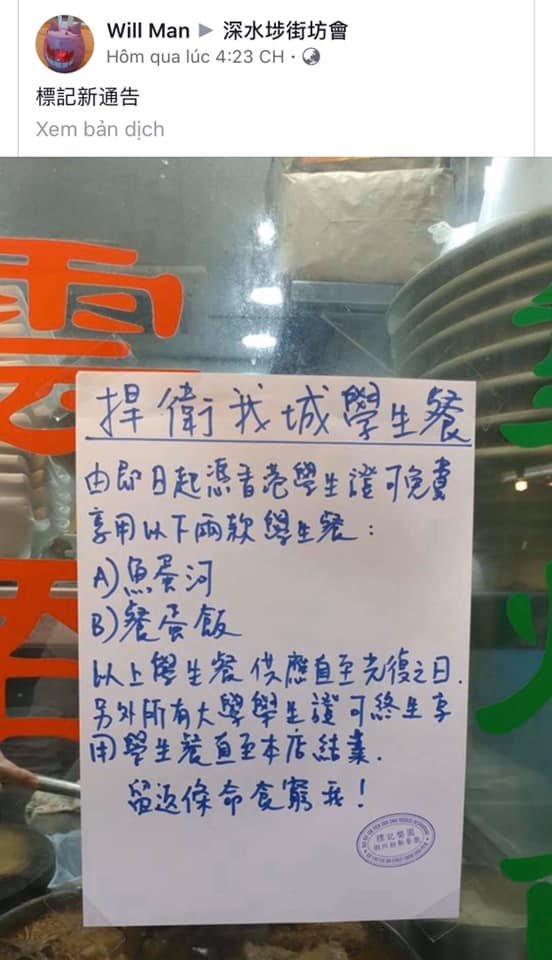 Will Man ▶ 深水埗街坊會
Hôm qua lúc 4:23 CH ·
標記新通告
Xem bản dịch
捍衛我城學生餐
由即日起憑香港學生證可免費
享用以下兩款學生餐：
A)魚蛋河
B)餐蛋飯
以上學生餐供應直至光復之日.
另外所有大學學生證可終生享
用學生餐直至本店結業.
留返條命食窮我！
標記樂園
潮州粉麵餐飲
雲
吞